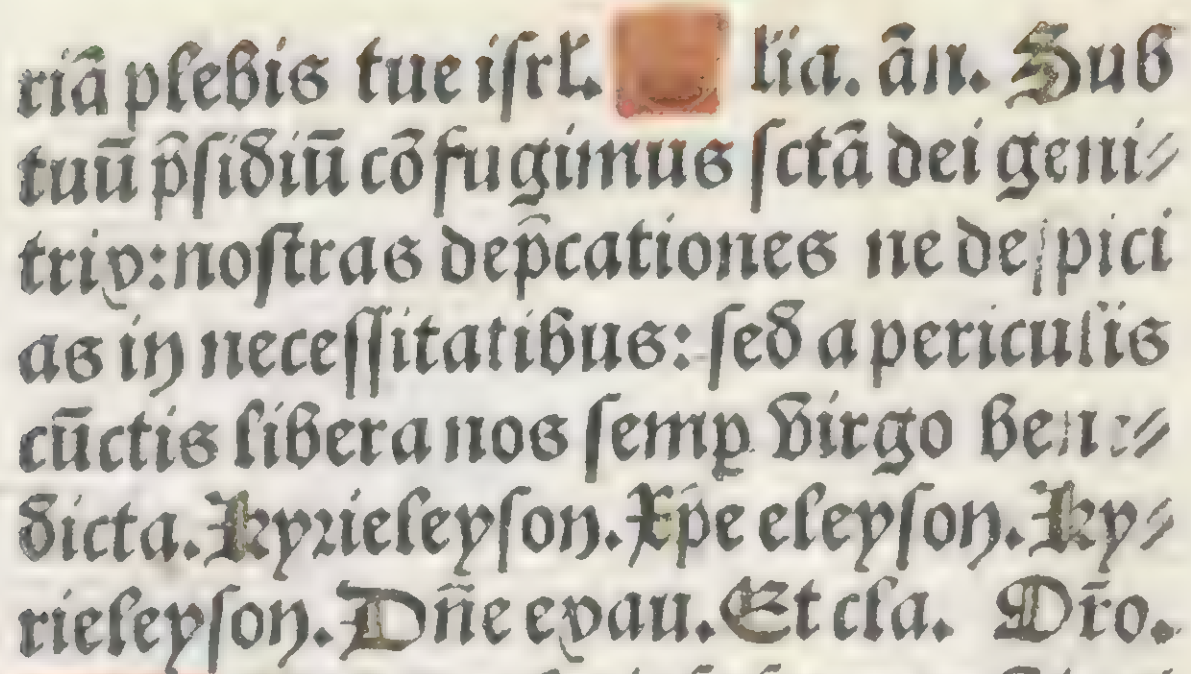 riã plebis tue iſrl. G lia. ãn. Sub
tuũ p̃ſidiũ cõfugimus ſctã dei geni⸗
trix: noſtras dep̃cationes ne deſpici
as in neceſſitatibus: ſed a periculis
cũctis libera nos ſemꝑ virgo bene⸗
dicta. Kyrieleyſon. Xp̄e eleyſon. Ky⸗
rieleyſon. Dñe exau. Et cla. Or̃o.